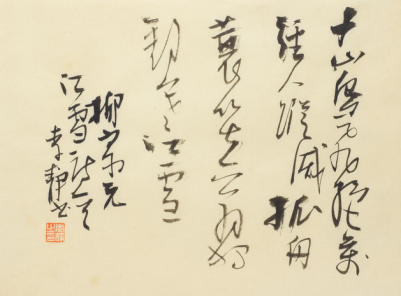 千山鳥飛絕萬
徑人蹤滅孤舟
蓑笠翁獨
釣寒江雪
柳宗元
江雪詩一首
李靜书